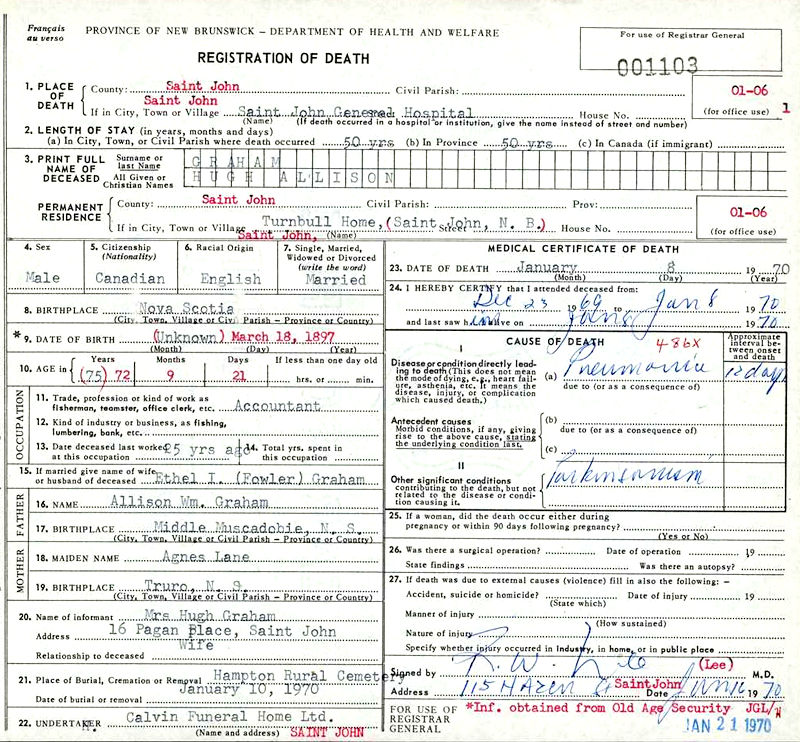 Français
au verso
PROVINCE OF NEW BRUNSWICK – DEPARTMENT OF HEALTH AND WELFARE
REGISTRATION OF DEATH
For use of Registrar General
001103
1. PLACE OF DEATH
County: Saint John Civil Parish:
Saint John
If in City, Town or Village Saint John General Hospital House No.
(Name) (If death occurred in a hospital or institution, give the name instead of street and number)
01-06
(for office use) 1
2. LENGTH OF STAY (in years, months and days)
(a) In City, Town, or Civil Parish where death occurred 50 yrs (b) In Province 50 yrs (c) In Canada (if immigrant)
3. PRINT FULL NAME OF DECEASED
Surname or last Name GRAHAM
All Given or Christian Names HUGH ALLISON
PERMANENT RESIDENCE
County: Saint John Civil Parish: Prov:
If in City, Town or Village Turnbull Home, (Saint John, N. B.) Street House No.
Saint John, (Name)
01-06
(for office use)
4. Sex
Male
5. Citizenship
(Nationality)
Canadian
6. Racial Origin
English
7. Single, Married, Widowed or Divorced
(write the word)
Married
8. BIRTHPLACE Nova Scotia
(City, Town, Village or Civil Parish - Province or Country)
* 9. DATE OF BIRTH (Unknown) March 18, 1897
(Month) (Day) (Year)
10. AGE in
Years
(75) 72
Months
9
Days
21
If less than one day old
hrs. or min.
OCCUPATION
11. Trade, profession or kind of work as
fisherman, teamster, office clerk, etc. Accountant
12. Kind of industry or business, as fishing,
lumbering, bank, etc.
13. Date deceased last worked
at this occupation 25 yrs ago
14. Total yrs. spent in
this occupation
15. If married give name of wife
or husband of deceased Ethel I. (Fowler) Graham
FATHER
16. NAME Allison Wm. Graham
17. BIRTHPLACE Middle Muscadobie, N. S.
(City, Town, Village or Civil Parish - Province or Country)
MOTHER
18. MAIDEN NAME Agnes Lane
19. BIRTHPLACE Truro, N. S.
(City, Town, Village or Civil Parish - Province or Country)
20. Name of informant Mrs Hugh Graham
Address 16 Pagan Place, Saint John
Relationship to deceased Wife
21. Place of Burial, Cremation or Removal Hampton Rural Cemetery
Date of burial or removal January 10, 1970
22. UNDERTAKER Calvin Funeral Home Ltd.
(Name and address) SAINT JOHN
MEDICAL CERTIFICATE OF DEATH
23. DATE OF DEATH January 8 1970
(Month) (Day) (Year)
24. I HEREBY CERTIFY that I attended deceased from:
Dec 23 1969 to Jan 8 1970
and last saw him alive on Jan 8 1970
CAUSE OF DEATH 486X
Approximate interval between onset and death
I
Disease or condition directly leading to death (This does not mean the mode of dying, e.g., heart failure, asthenia, etc. It means the disease, injury, or complication which caused death.)
(a) Pneumonia 12 days
due to (or as a consequence of)
Antecedent causes
Morbid conditions, if any, giving rise to the above cause, stating the underlying condition last.
(b)
due to (or as a consequence of)
(c)
II
Other significant conditions
contributing to the death, but not related to the disease or condition causing it.
Parkinsonism
25. If a woman, did the death occur either during
pregnancy or within 90 days following pregnancy?
(Yes or No)
26. Was there a surgical operation? Date of operation 19
State findings Was there an autopsy?
27. If death was due to external causes (violence) fill in also the following: –
Accident, suicide or homicide? Date of injury 19
(State which)
Manner of injury
(How sustained)
Nature of injury
Specify whether injury occurred in Industry, in home, or in public place
Signed by (Lee) M.D.
Address 115 HAZEN St Saint John Date Jan 16 1970
FOR USE OF REGISTRAR GENERAL
*Inf. obtained from Old Age Security JGL/
JAN 21 1970